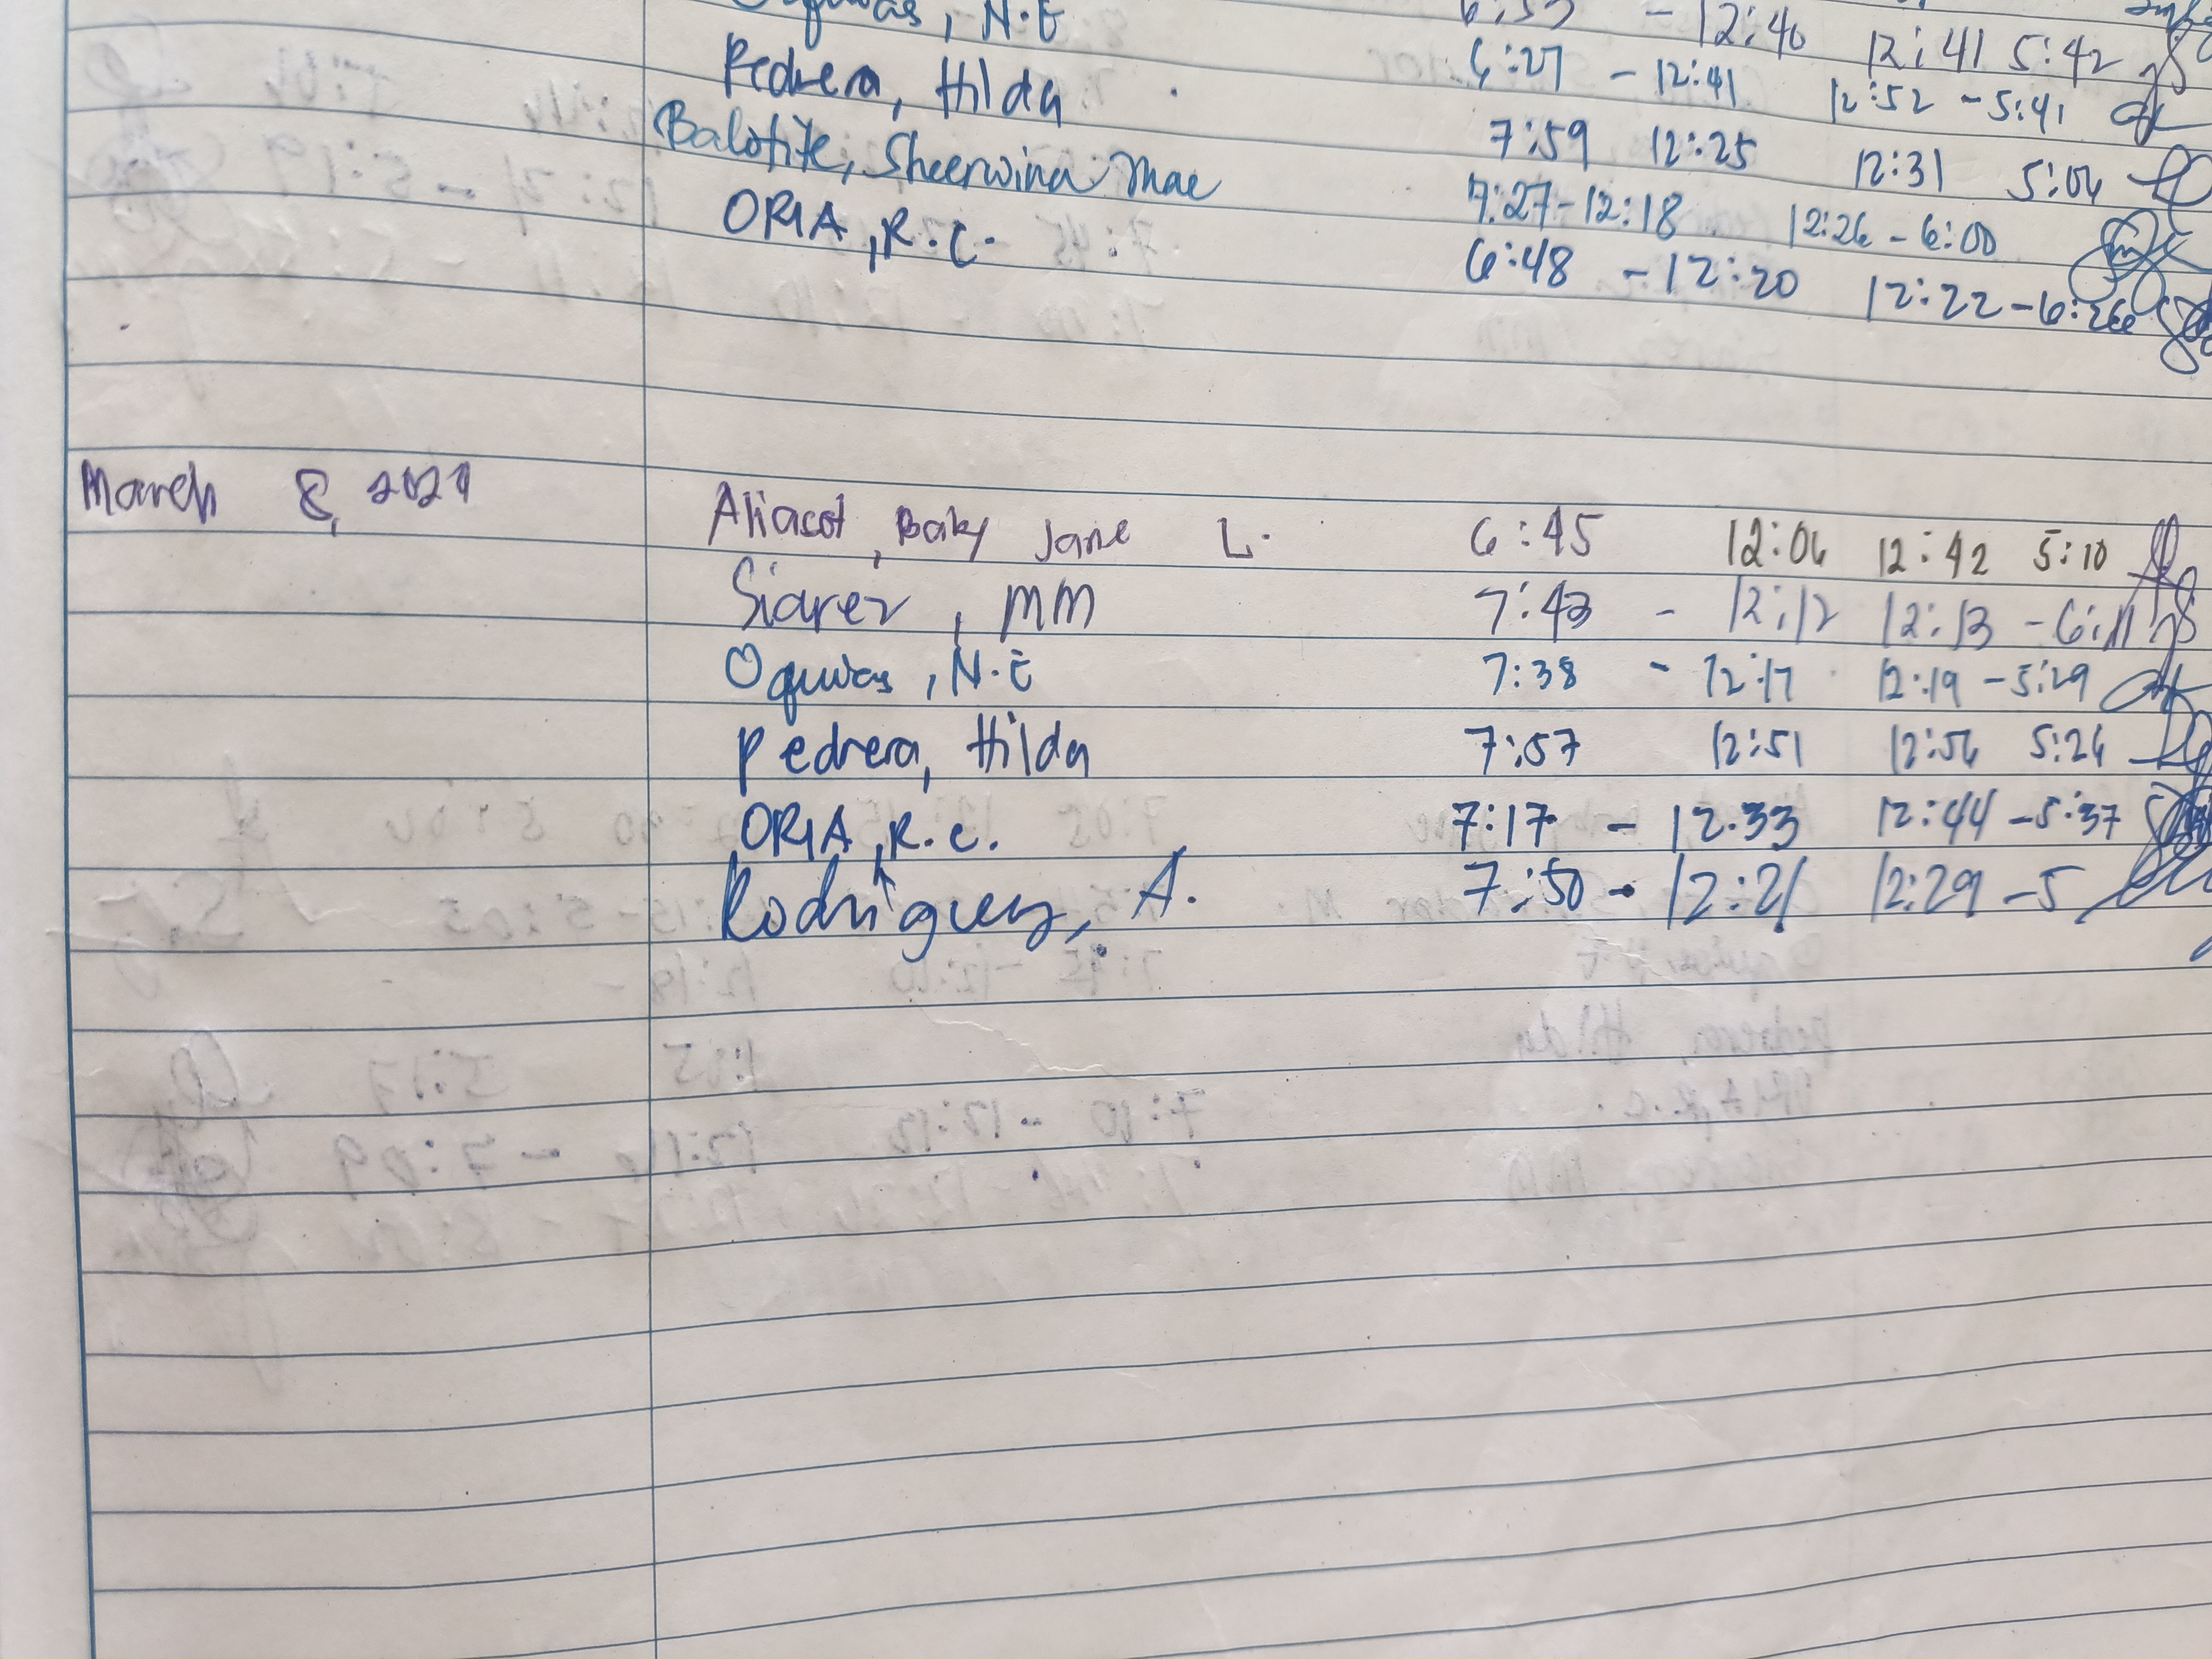 Oquias, N.E 6:53 - 12:40 12:41 5:42
Pedrera, Hilda 6:27 - 12:41 12:52 - 5:41
7:59 12:25 12:31 5:04
Balotite, Sheerwina Mae 7:27-12:18 12:26 - 6:00
ORIA, R.C. 6:48 - 12:20 12:22 - 6:26
March 8, 2021 Aliasot, Baby Jane L. 6:45 12:06 12:42 5:10
Siarez, MM 7:43 - 12:12 12:13 - 6:11
Oquias, N.E 7:38 - 12:17 12:19 - 5:29
Pedrera, Hilda 7:57 12:51 12:56 5:26
ORIA, R.C. 7:17 - 12.33 12:44 - 5:37
Rodriguez, A. 7:50 - 12:21 12:29 - 5